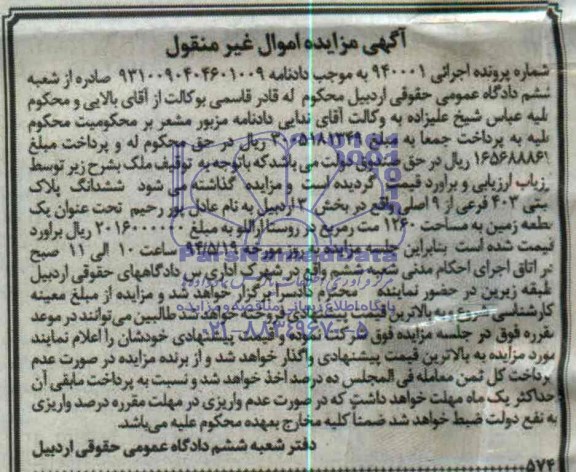 آگهی مزایده اموال غیر منقول
شماره پرونده اجرائی ۹۴۰۰۰۱ به موجب دادنامه ۹۳۱۰۰۹۰۴۰۴۶۰۱۰۰۹ صادره از شعبه
ششم دادگاه عمومی حقوقی اردبیل محکوم له قادر قاسمی بوکالت از آقای بالایی و محکوم
علیه عباس شیخ علیزاده به وکالت آقای ندایی دادنامه مزبور مشعر بر محکومیت محکوم
علیه به پرداخت جمعا به مبلغ ریال در حق محکوم له و پرداخت مبلغ
۱۶۵۶۸۸۸۶۱ ریال در حق دولت می باشد که باتوجه به توقیف ملک بشرح زیر توسط
ارزیاب ارزیابی و براورد قیمت گردیده است و مزایده گذاشته می شود ششدانگ پلاک
ثبتی ۴۰۳ فرعی از ۹ اصلی واقع در بخش ۳ اردبیل به نام عادل پور رحیم تحت عنوان یک
قطعه زمین به مساحت ۱۲۶۰ مت رمربع در روستا اراللو به مبلغ ۲۰۱۶۰۰۰۰۰۰ ریال براورد
قیمت شده است بنابراین جلسه مزایده به روز مورخه ۹۴/۵/۱۹ ساعت ۱۰ الی ۱۱ صبح
در اتاق اجرای احکام مدنی شعبه ششم واقع در شهرک اداری بن دادگاههای حقوقی اردبیل
طبقه زیرین در حضور نماینده دادسرا برگزار خواهد شد و مزایده از مبلغ معینه
کارشناسی شروع و به بالاترین قیمت پیشنهادی فروخته خواهد شد طالبین می توانند در موعد
مقرره فوق در جلسه مزایده فوق شرکت نموده و قیمت پیشنهادی خودشان را اعلام نمایند
مورد مزایده به بالاترین قیمت پیشنهادی واگذار خواهد شد و از برنده مزایده در صورت عدم
پرداخت کل ثمن معامله فی المجلس ده درصد اخذ خواهد شد و نسبت به پرداخت مابقی آن
حداکثر یک ماه مهلت خواهد داشت که در صورت عدم واریزی در مهلت مقرره درصد واریزی
به نفع دولت ضبط خواهد شد ضمنا کلیه مخارج بعهده محکوم علیه می باشد.
دفتر شعبه ششم دادگاه عمومی حقوقی اردبیل
۵۷۴
ParsNamadData
پایگاه اطلاع رسانی مناقصه و مزایده
۰۲۱-۸۸۳۴۹۶۷۰-۵